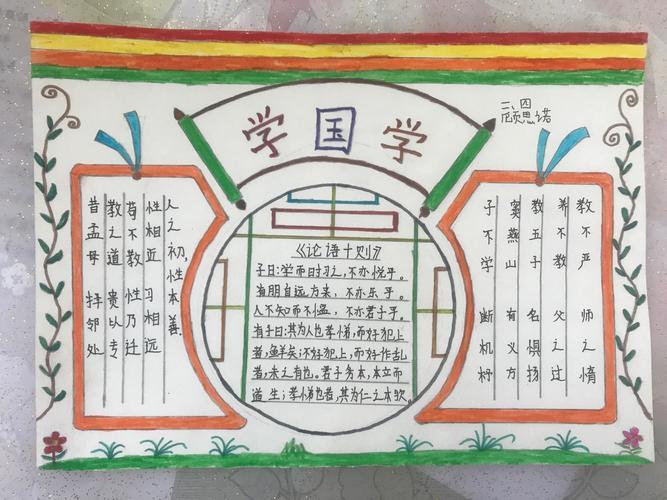 学国学
二、四
顾思诺
人之初,性本善.
性相近 习相远
苟不教 性乃迁
教之道 贵以专
昔孟母 择邻处
《论语十则》
子曰:学而时习之,不亦悦乎。
有朋自远方来,不亦乐乎。
人不知而不愠,不亦君子乎。
有子曰:其为人也孝悌,而好犯上
者,鲜矣;不好犯上,而好作乱
者,未之有也。君子务本,本立而
道生;孝悌也者,其为仁之本欤.
子不学 断机杼
窦燕山 有义方
教五子 名惧扬
养不教 父之过
教不严 师之惰